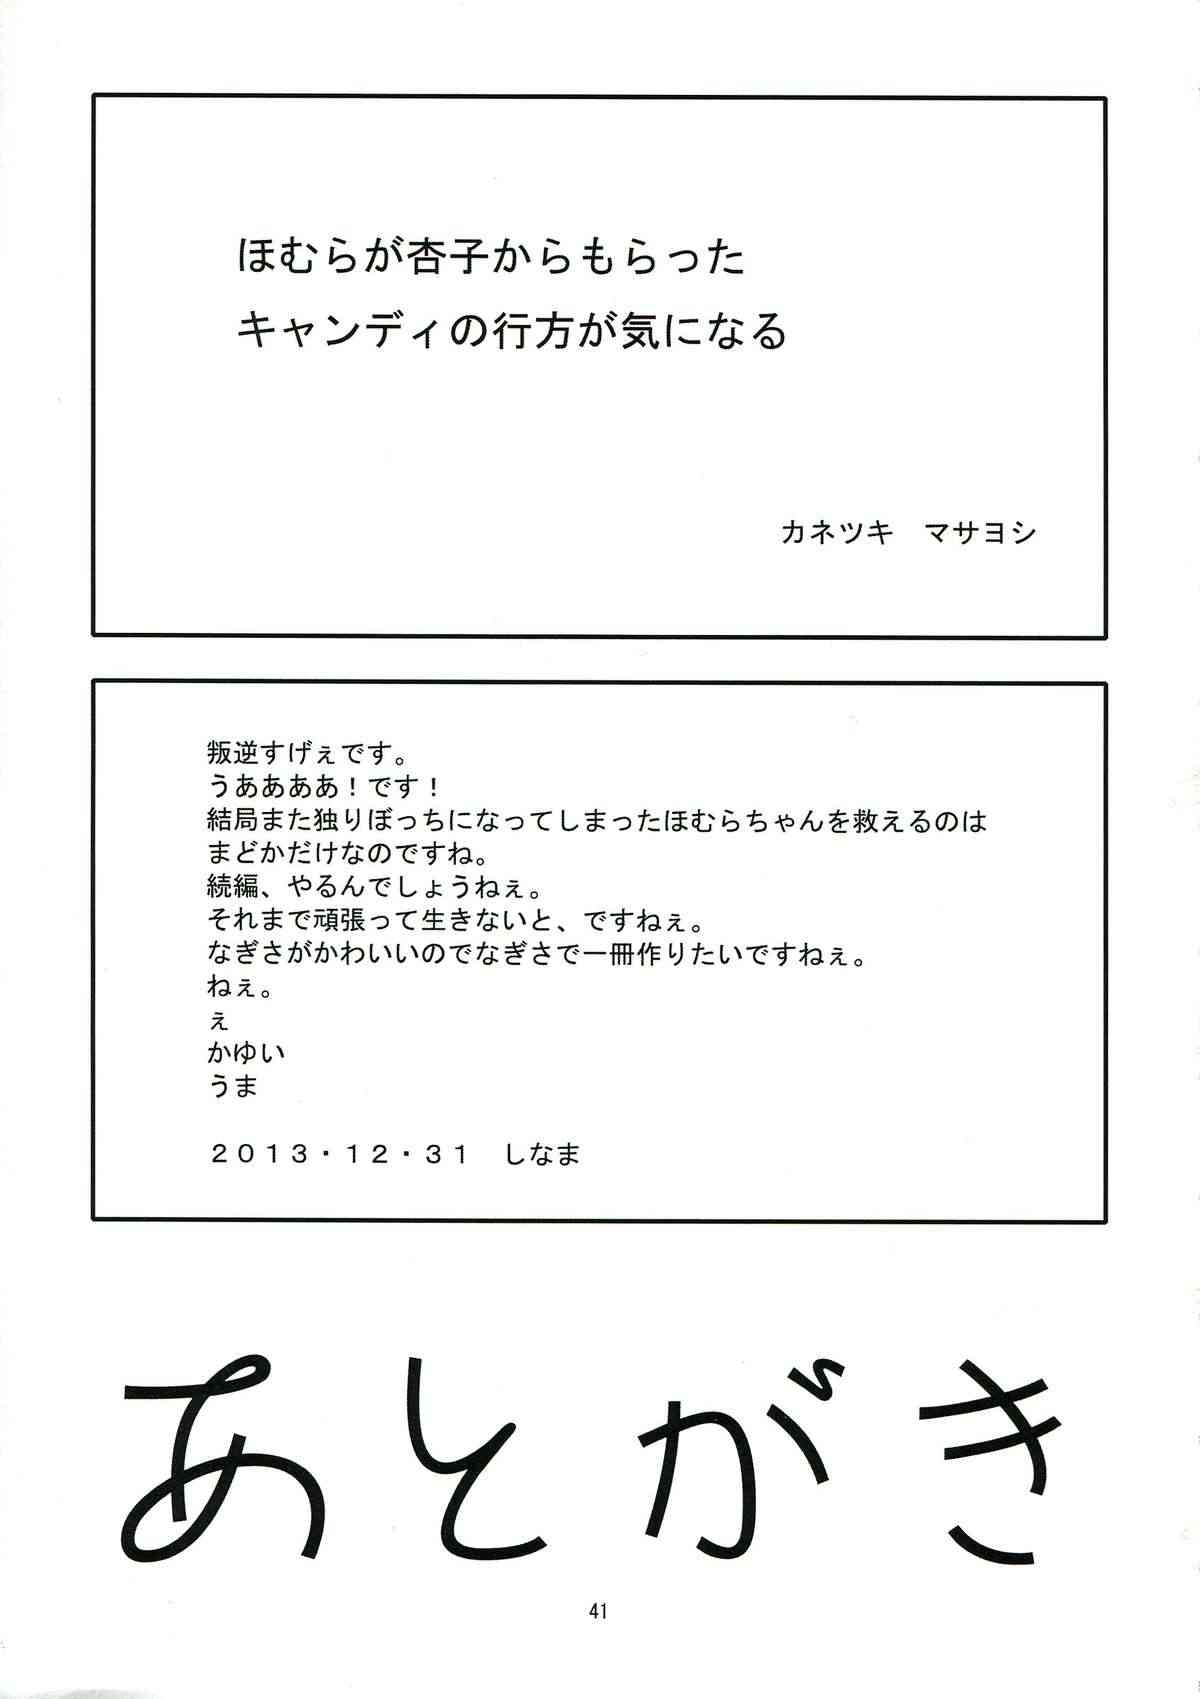 ほむらが杏子からもらった
キャンディの行方が気になる
カネツキ　マサヨシ
叛逆すげぇです。
うああああ！です！
結局また独りぼっちになってしまったほむらちゃんを救えるのは
まどかだけなのですね。
続編、やるんでしょうねぇ。
それまで頑張って生きないと、ですねぇ。
なぎさがかわいいのでなぎさで一冊作りたいですねぇ。
ねぇ。
ぇ
かゆい
うま
２０１３・１２・３１　しなま
あとがき
41